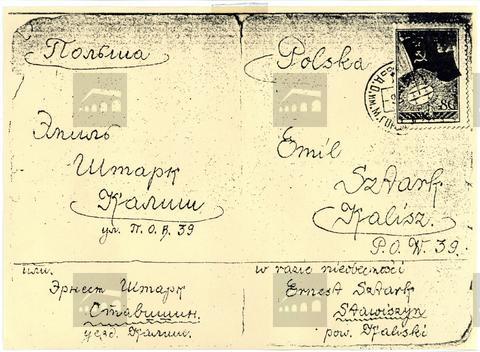 Польша
Эмиль
Штарк
Калиш
ул. П.О.В. 39
или.
Эрнест Штарк
Ставишин.
уезд. Калиш.
Polska
80
Emil
Sztark
Kalisz.
P.O.W. 39.
w razie nieobecności
Ernest Sztark
Stawiszyn
pow. Kaliski